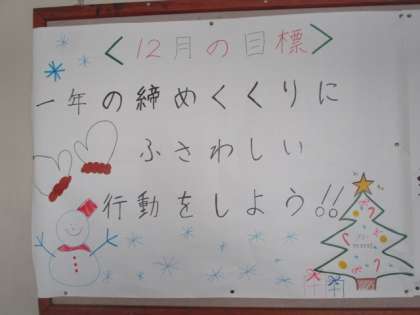 <12月の目標>
一年の締めくくりに
ふさわしい
行動をしよう!!